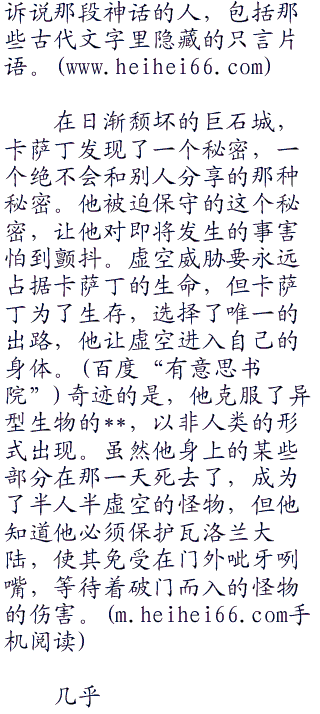 诉说那段神话的人，包括那
些古代文字里隐藏的只言片
语。(www.heihei66.com)
在日渐颓坏的巨石城，
卡萨丁发现了一个秘密，一
个绝不会和别人分享的那种
秘密。他被迫保守的这个秘
密，让他对即将发生的事害
怕到颤抖。虚空威胁要永远
占据卡萨丁的生命，但卡萨
丁为了生存，选择了唯一的
出路，他让虚空进入自己的
身体。(百度“有意思书
院”)奇迹的是，他克服了异
型生物的**，以非人类的形
式出现。虽然他身上的某些
部分在那一天死去了，成为
了半人半虚空的怪物，但他
知道他必须保护瓦洛兰大
陆，使其免受在门外呲牙咧
嘴，等待着破门而入的怪物
的伤害。(m.heihei66.com手
机阅读)
几乎